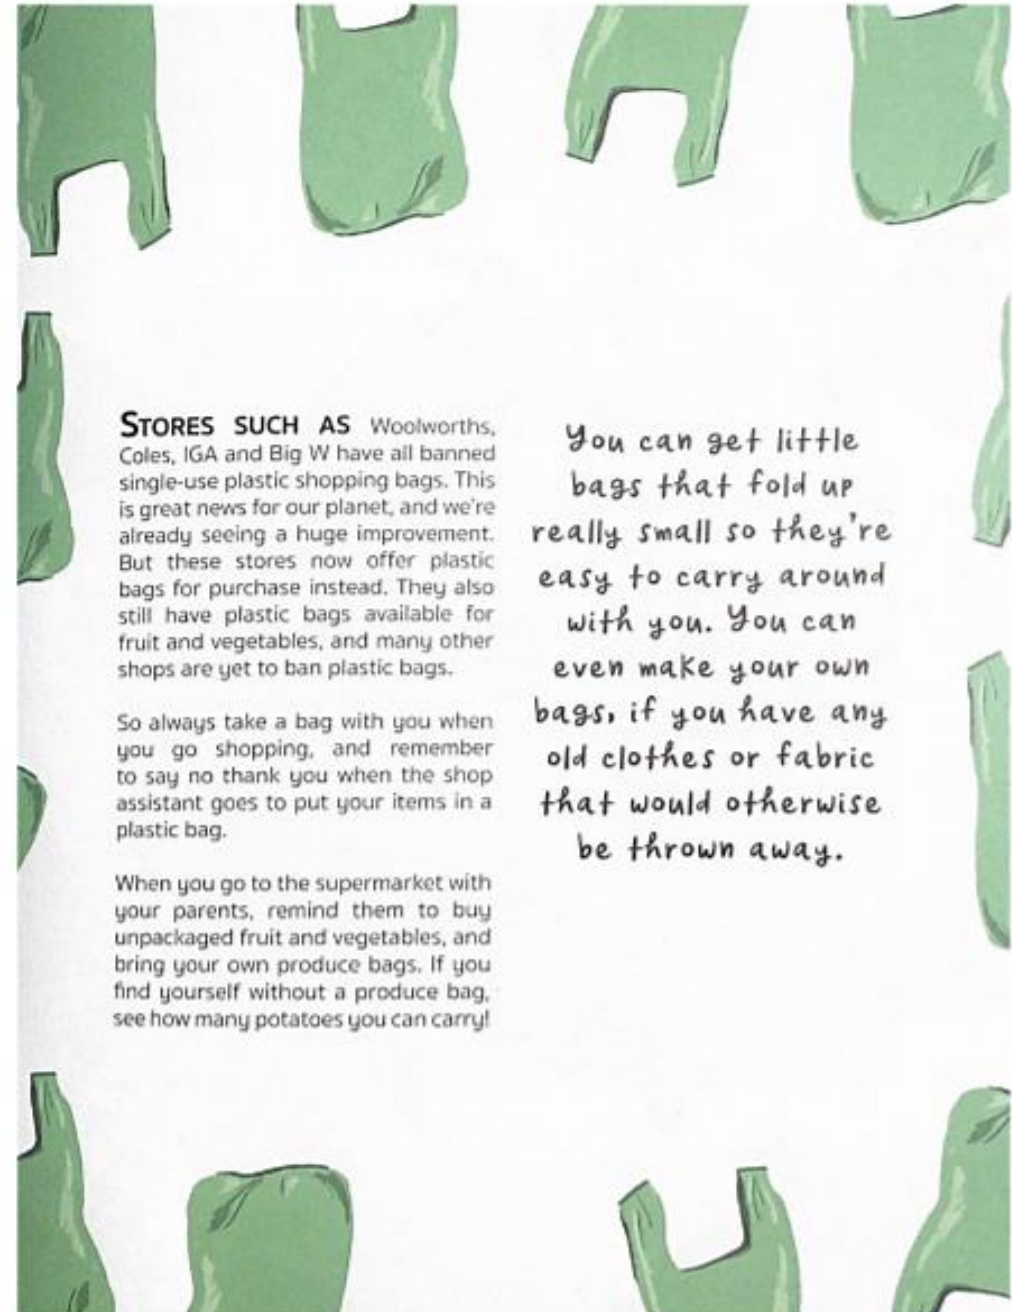 STORES SUCH AS Woolworths,
Coles, IGA and Big W have all banned
single-use plastic shopping bags. This
is great news for our planet, and we're
already seeing a huge improvement.
But these stores now offer plastic
bags for purchase instead. They also
still have plastic bags available for
fruit and vegetables, and many other
shops are yet to ban plastic bags.
So always take a bag with you when
you go shopping, and remember
to say no thank you when the shop
assistant goes to put your items in a
plastic bag.
When you go to the supermarket with
your parents, remind them to buy
unpackaged fruit and vegetables, and
bring your own produce bags. If you
find yourself without a produce bag,
see how many potatoes you can carry!
You can get little
bags that fold up
really small so they're
easy to carry around
with you. You can
even make your own
bags, if you have any
old clothes or fabric
that would otherwise
be thrown away.